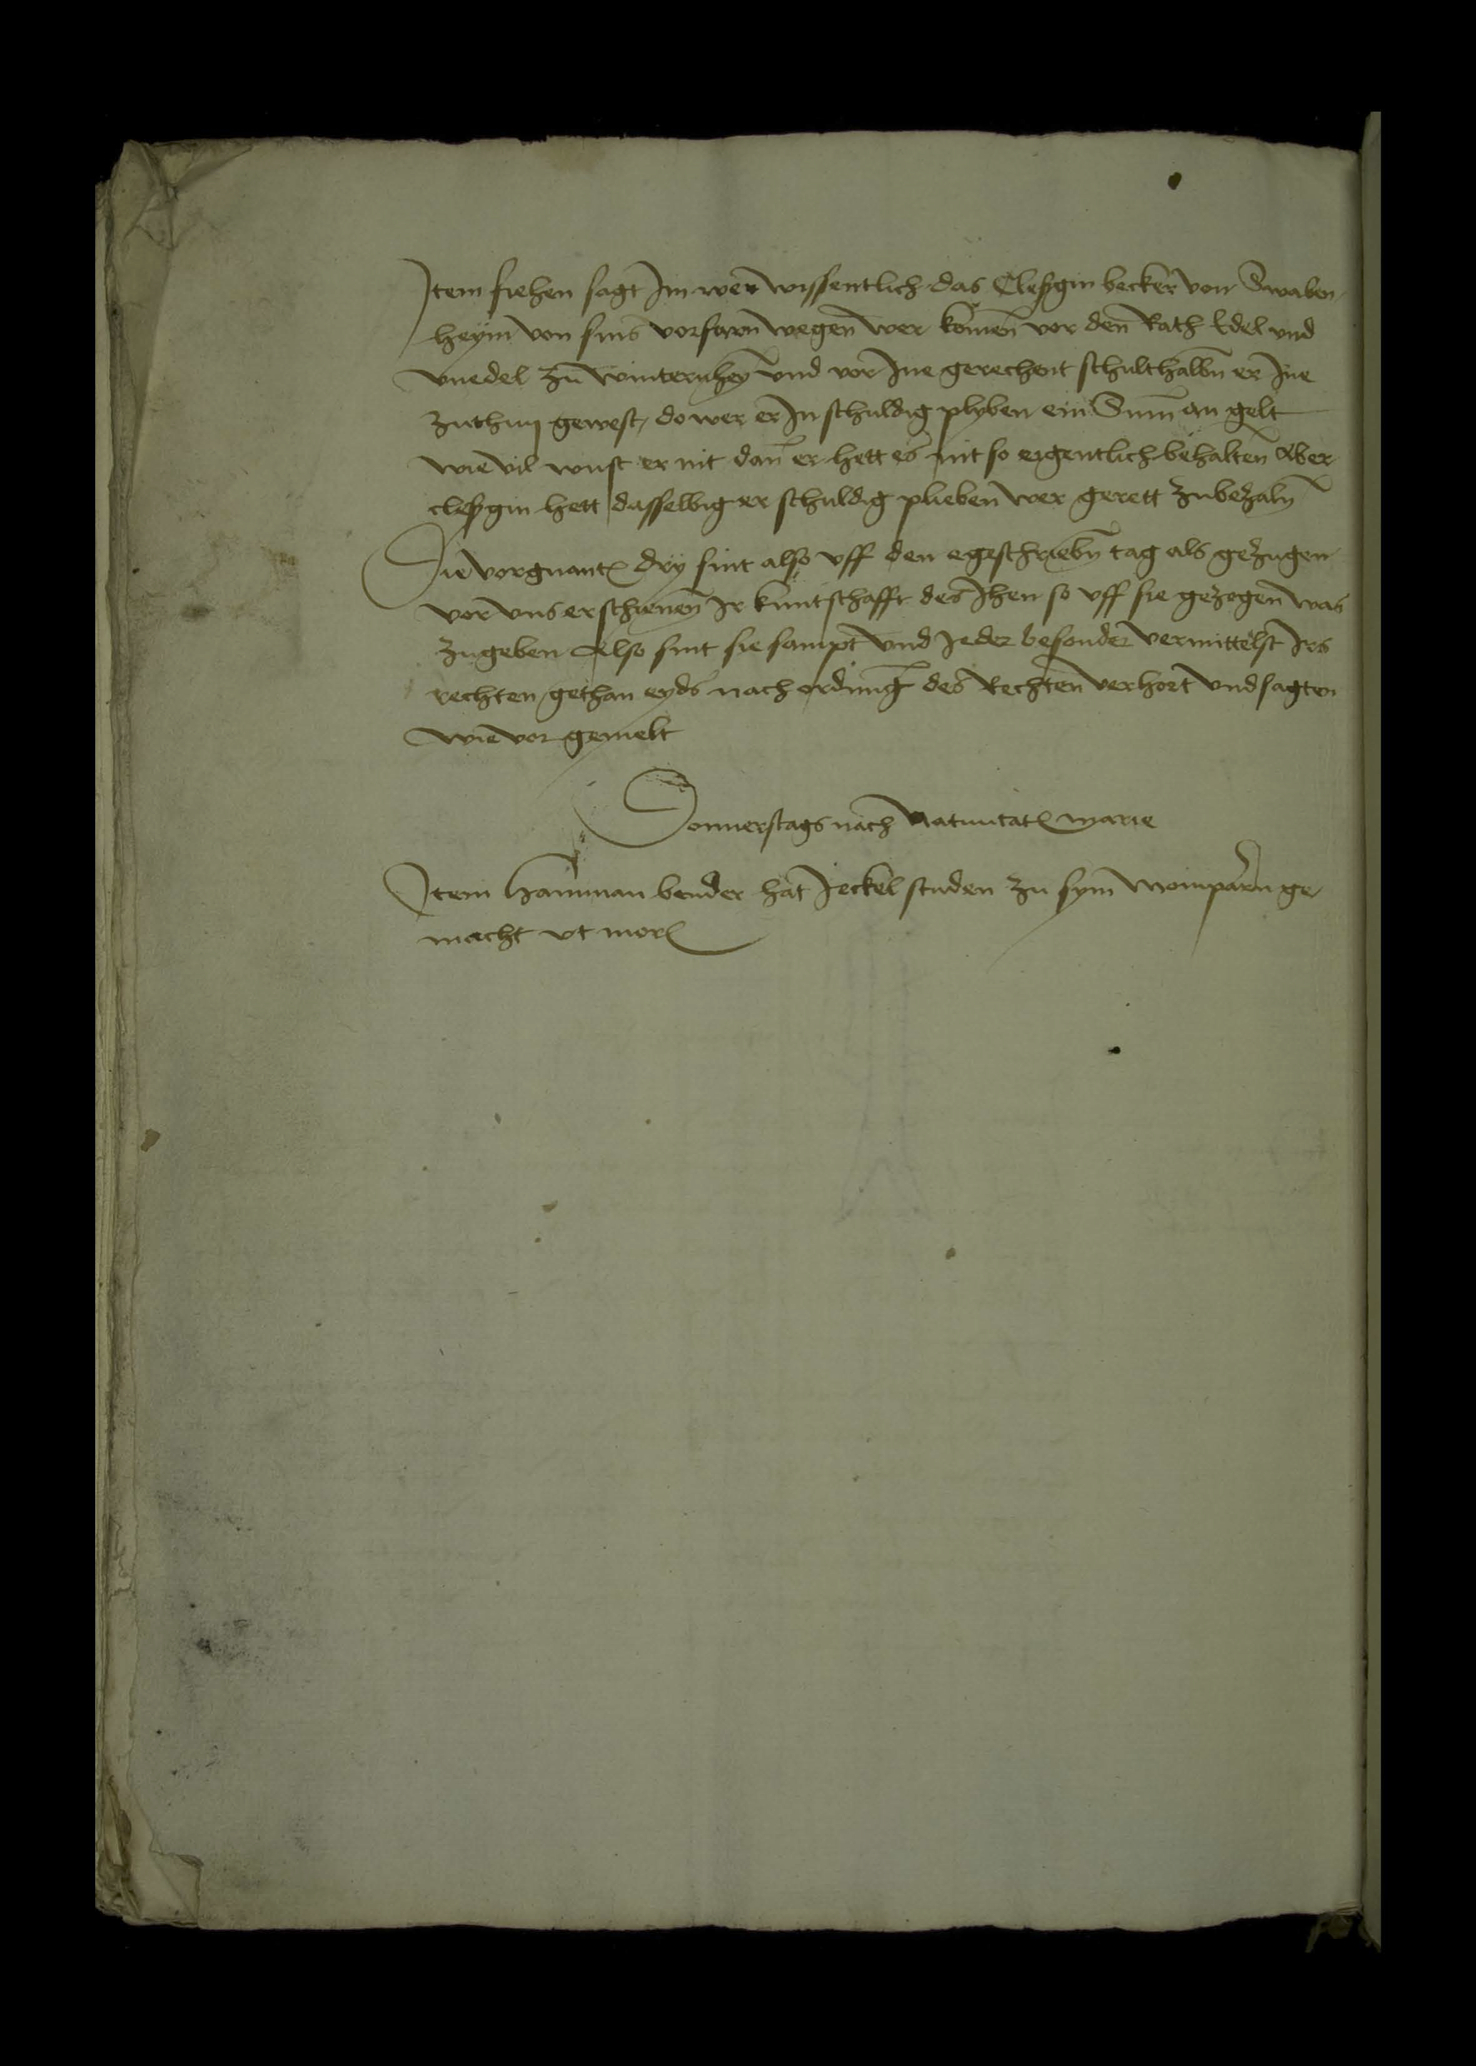 Item siehen sagt Im wer wyssentlich das Cleßgin becker von Swaben-
heym von sins vorfarn wegen wer komen vor den Rath Edel vnd
vnedel zu winternheym vnd vor Ine gerechent schulthalbn er Ine
zuthun gewest, do wer er In schuldig plyben ein Sum an gelt
wie vil wust er nit dan er hett es nit so eigentlich behalten Aber
cleßgin hett dasselbig er schuldig plieben wer gerett zubezaln
Die vorgnanten dry sint also vff den egeschriebn tag als gezugen
vor vns erschienen Ir kuntschafft des Ihen so vff sie gezogen was
zugeben Also sint sie sampt vnd Ieder besonder vermittelst Irs
rechten gethan eyds nach ordnung des Rechten verhort vnd sagten
wie vor gemelt
Donnerstags nach Natiuitatis marie
Item Hamman bender hat Jeckel studen zu sym momparn ge-
macht vt moris